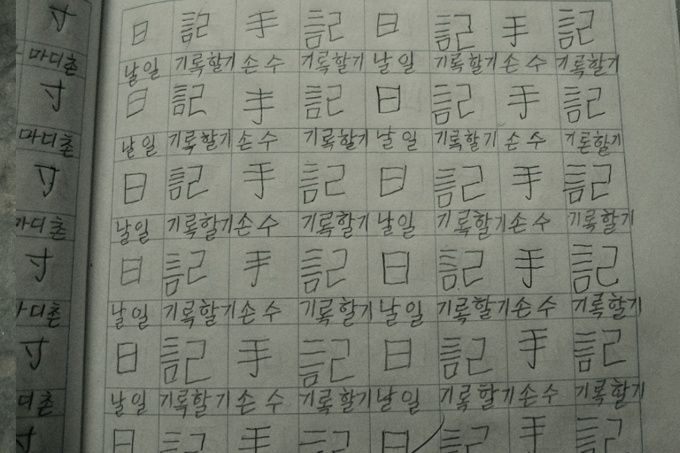 寸
마디촌
寸
마디촌
寸
마디촌
寸
마디촌
寸
디촌
寸
日 記 手 記 日 記 手 記
날일 기록할기 손수 기록할기 날일 기록할기 손수 기록할기
日 記 手 記 日 記 手 記
날일 기록할기 손수 기록할기 날일 기록할기 손수 기론할기
日 記 手 記 日 記 手 記
날일 기록할기 손수 기록할기 날일 기록할기 손수 기록할기
日 記 手 記 日 記 手 記
날일 기록할기 손수 기록할기 날일 기록할기 손수 기록할기
日 記 手 記 日 記 手 記
날일 기록할기 손수 기록할기 날일 기록할기 손수 기록할기
日 記 手 記 日 記 手 記